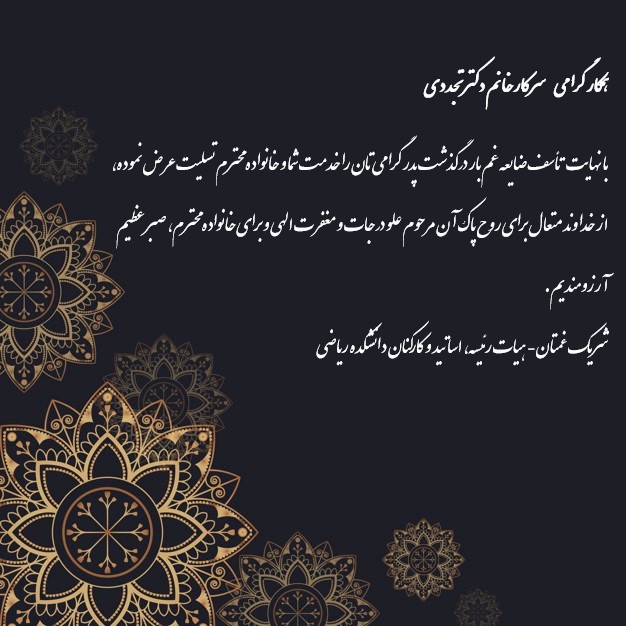 همکار گرامی سرکار خانم دکتر تجددی
با نهایت تأسف ضایعه غم بار درگذشت پدر گرامی تان را خدمت شما و خانواده محترم تسلیت عرض نموده،
از خداوند متعال برای روح پاک آن مرحوم علو درجات و مغفرت الهی و برای خانواده محترم، صبر عظیم
آرزومندیم.
شریک غمتان- هیات رئیسه، اساتید و کارکنان دانشکده ریاضی